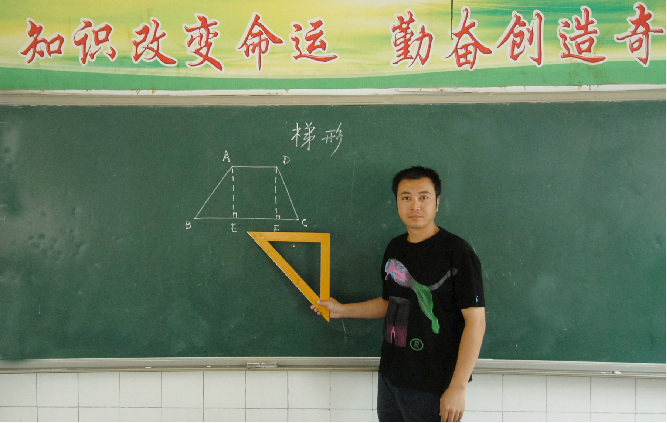 知识改变命运 勤奋创造奇
梯形
A D
B E F C
®